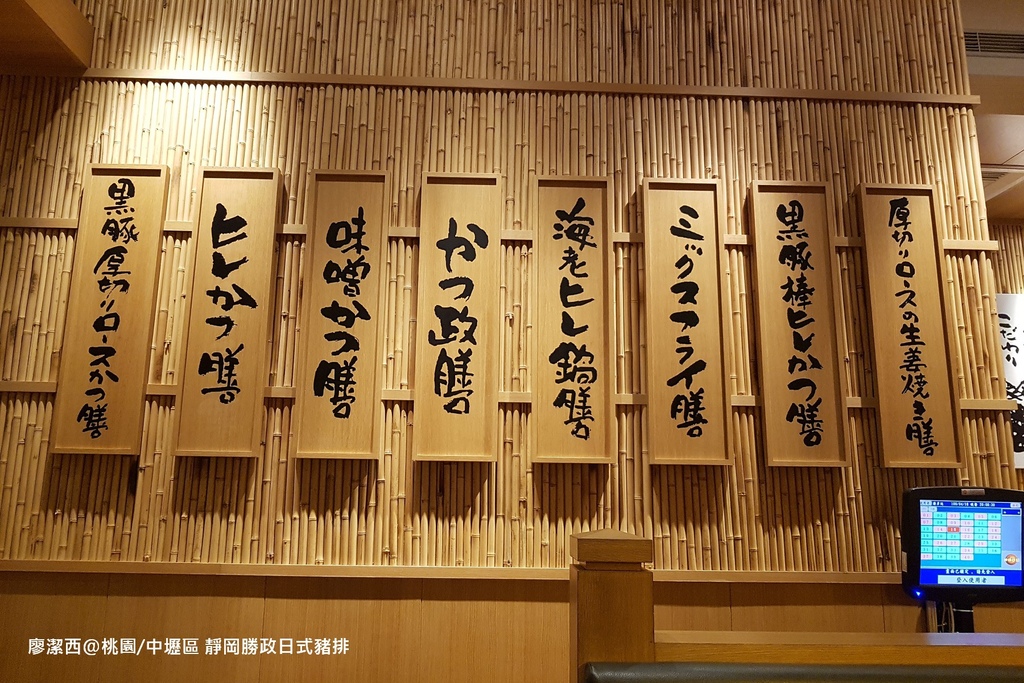 黒豚厚切りロースかつ膳
ヒレかつ膳
味噌かつ膳
かつ政膳
海老ヒレ鍋膳
ミックスフライ膳
黒豚棒ヒレかつ膳
厚切りロースの生姜焼き膳
こだわり
登入使用者
廖潔西@桃園/中壢區 靜岡勝政日式豬排